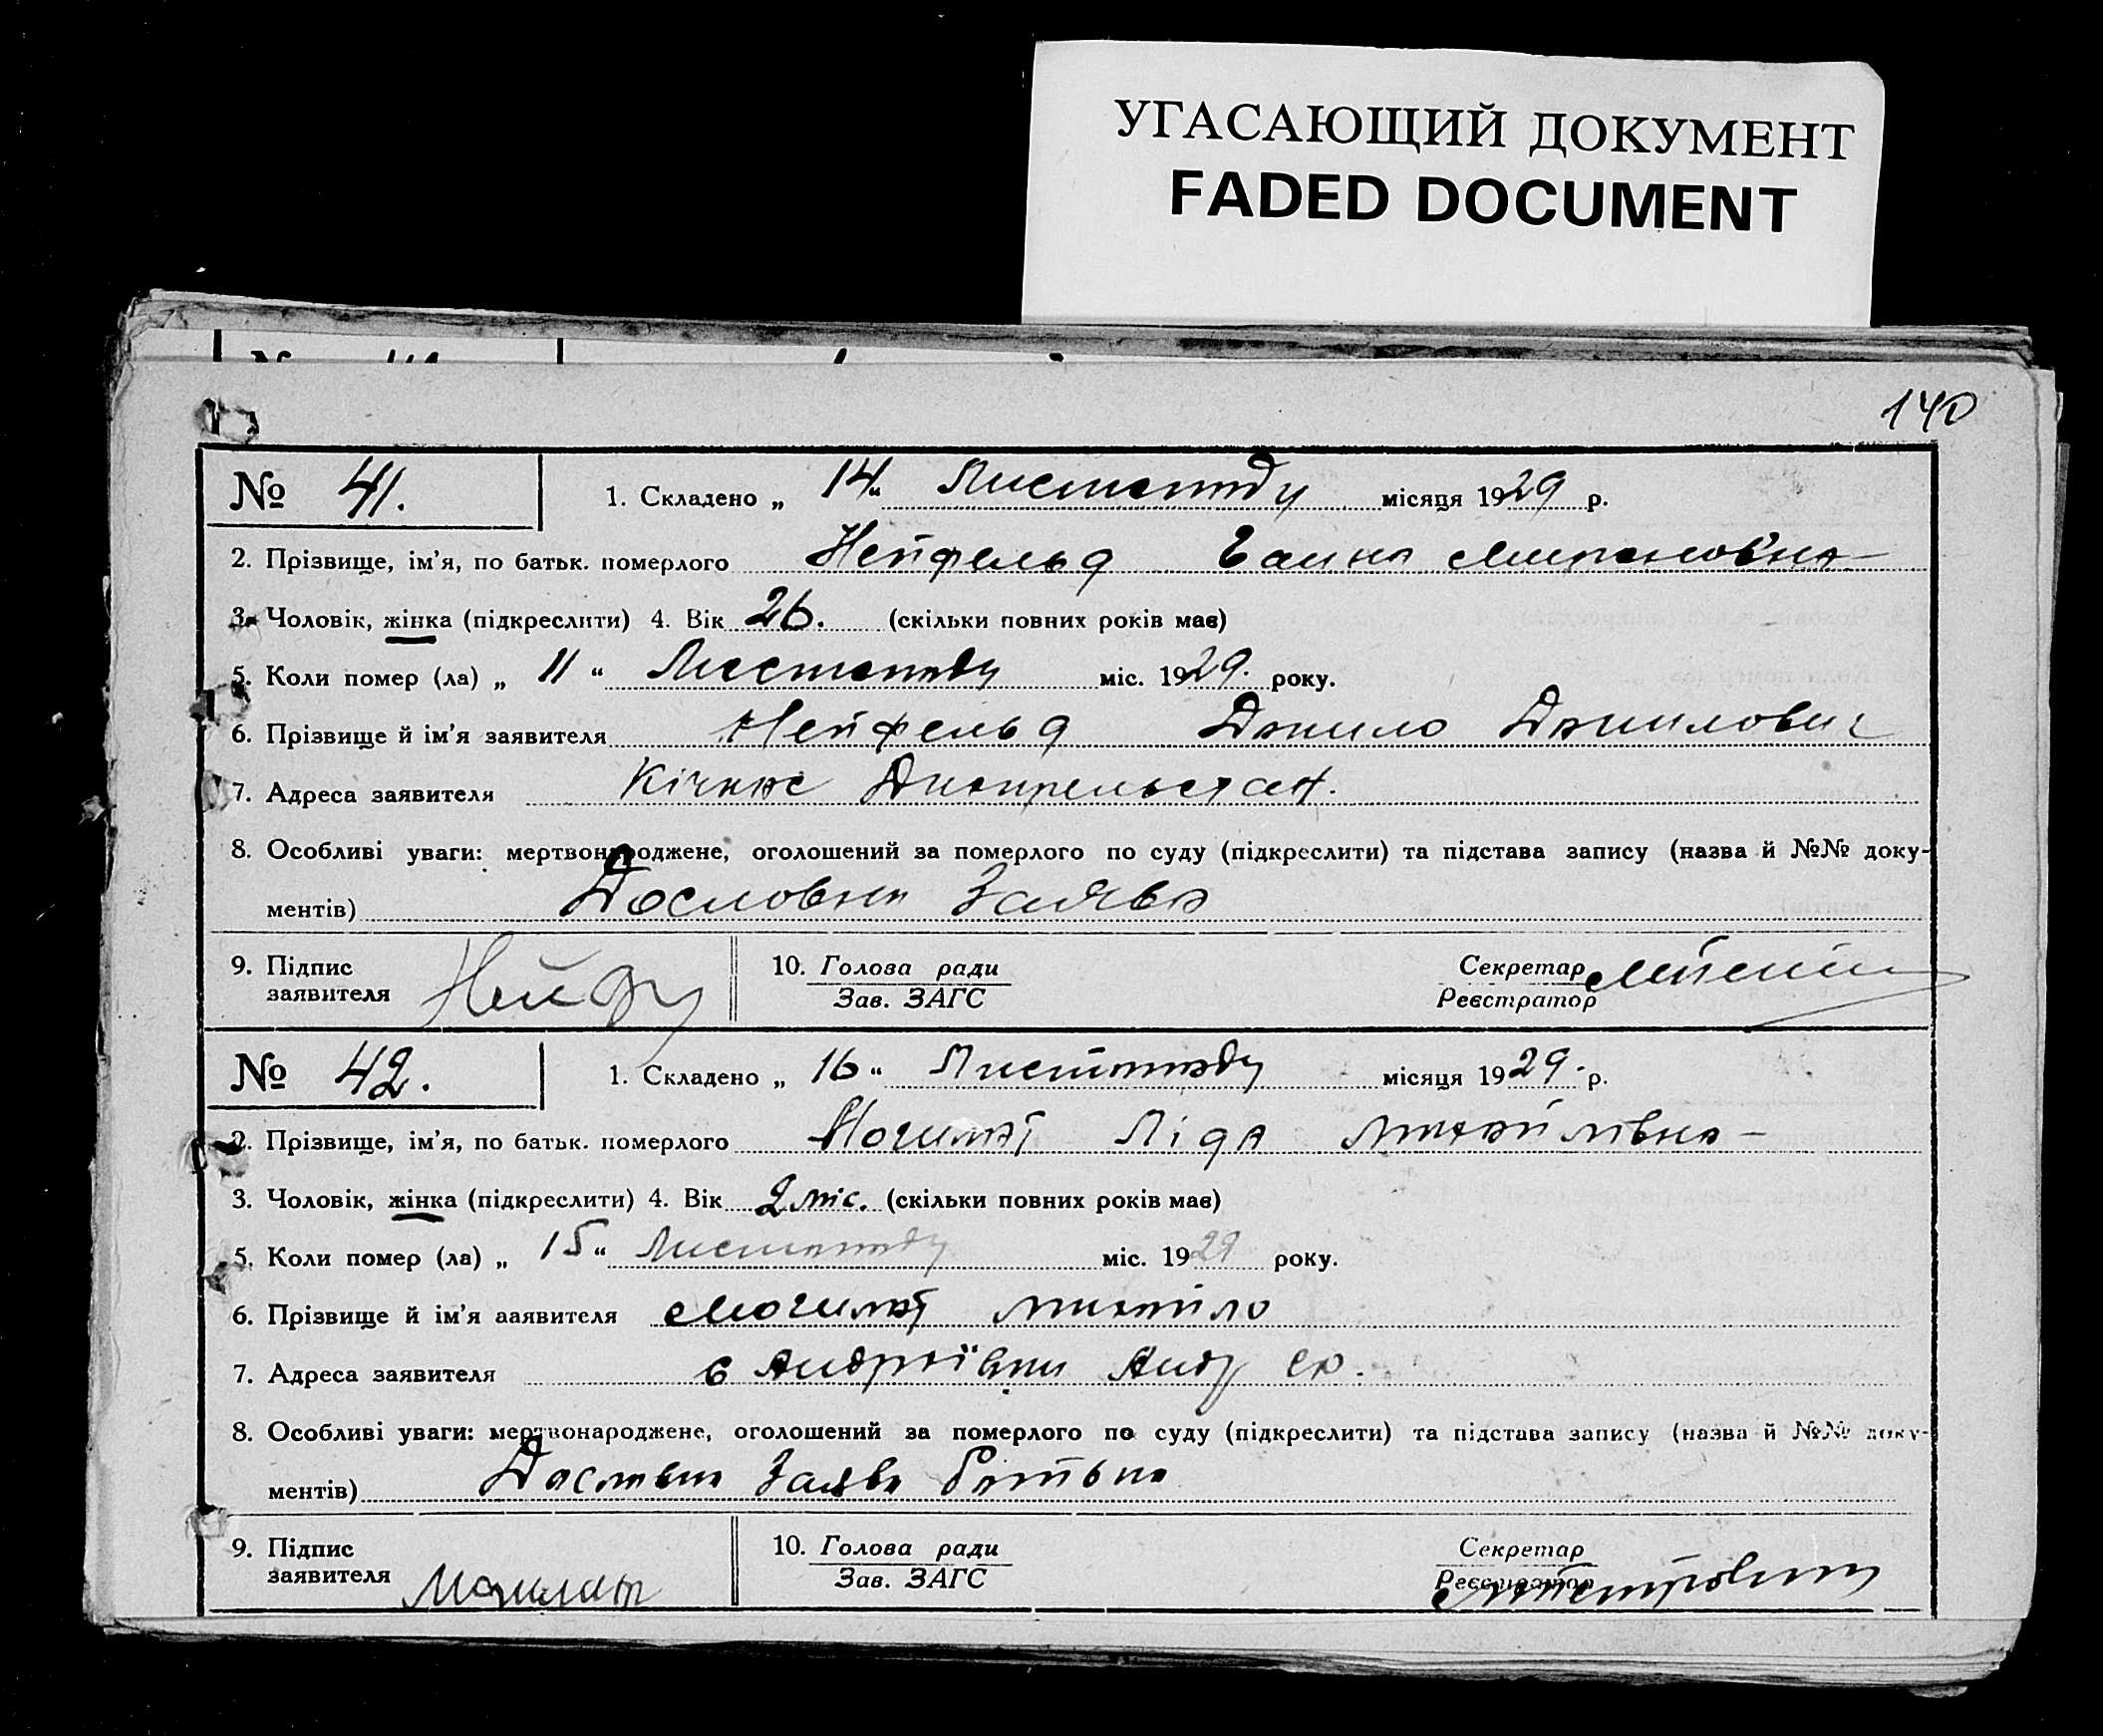 УГАСАЮЩИЙ ДОКУМЕНТ
FADED DOCUMENT
140
№ 41. 1. Складено „ 14 “ Листопаду місяця 1929 р.
2. Прізвище, ім'я, по батьк. померлого Нейфельд Ганна
3. Чоловік, жінка (підкреслити) 4. Вік 26. (скільки повних років має)
5. Коли помер (ла) „ 11 “ Листопаду міс. 1929. року.
6. Прізвище й ім'я заявителя Нейфельд Данило Данилович
7. Адреса заявителя Кічкас
8. Особливі уваги: мертвонароджене, оголошений за померлого по суду (підкреслити) та підстава запису (назва й №№ доку-
ментів) Дословна Заява
9. Підпис заявителя 10. Голова ради Секретар
Зав. ЗАГС Реєстратор
№ 42. 1. Складено „ 16 “ Листопаду місяця 1929. р.
2. Прізвище, ім'я, по батьк. померлого Могилат Ліда Михайлівна
3. Чоловік, жінка (підкреслити) 4. Вік 2 міс. (скільки повних років має)
5. Коли помер (ла) „ 15 “ Листопаду міс. 1929 року.
6. Прізвище й ім'я заявителя Могилат Михайло
7. Адреса заявителя с Андріївки Андр
8. Особливі уваги: мертвонароджене, оголошений за померлого по суду (підкреслити) та підстава запису (назва й №№ доку-
ментів) Дословна Заява Батька
9. Підпис заявителя Могилат 10. Голова ради Секретар
Зав. ЗАГС Реєстратор